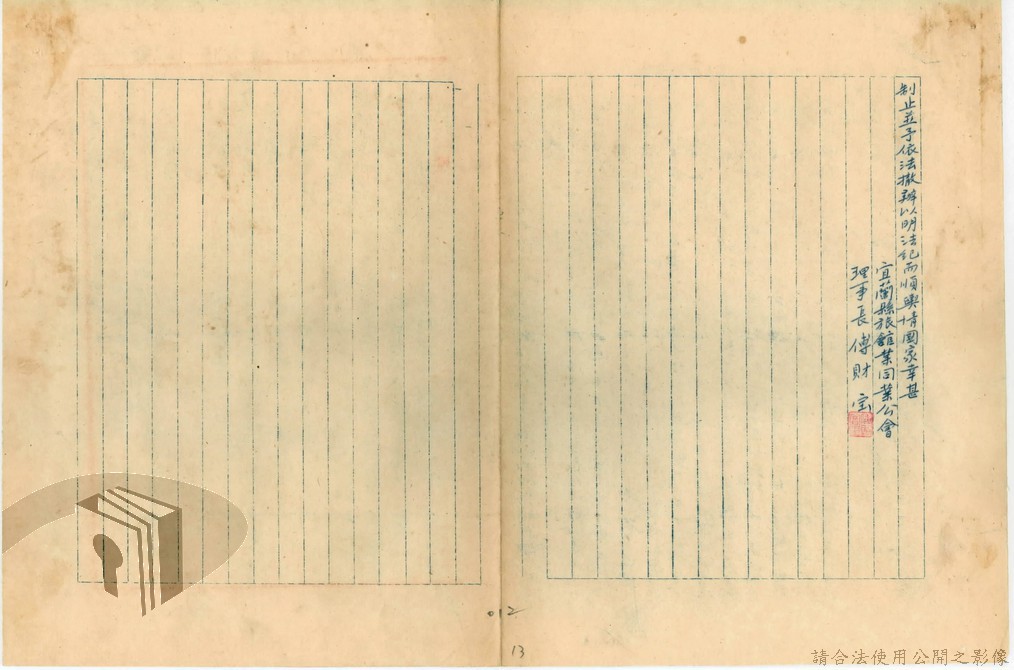 制止並予依法撤辦以明法紀而順輿情國家幸甚
宜蘭縣旅館業同業公會
理事長傅財宝
012
13
請合法使用公開之影像